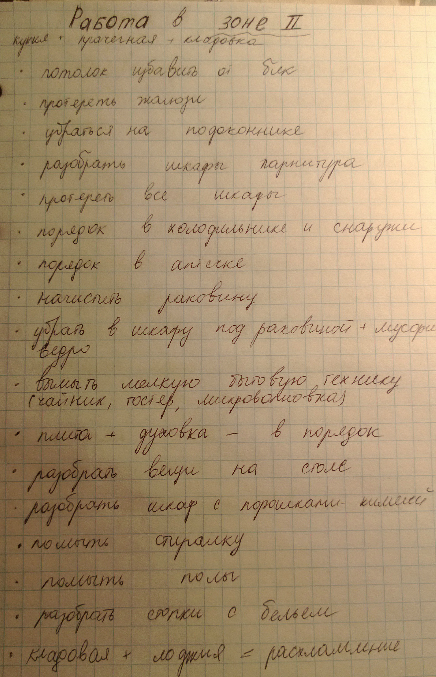 Работа в зоне II
кухня + прачечная + кладовка
· потолок избавить от бяк
· протереть жалюзи
· убраться на подоконнике
· разобрать шкафы гарнитура
· протереть все шкафы
· порядок в холодильнике и снаружи
· порядок в аптечке
· начистить раковину
· убрать в шкафу под раковиной + мусорное
ведро
· вымыть мелкую бытовую технику
(чайник, тостер, микроволновка)
· плита + духовка - в порядок
· разобрать вещи на столе
· разобрать шкаф с порошками - химией
· помыть стиралку
· помыть полы
· разобрать стопки с бельем
· кладовая + лоджия = расхламление